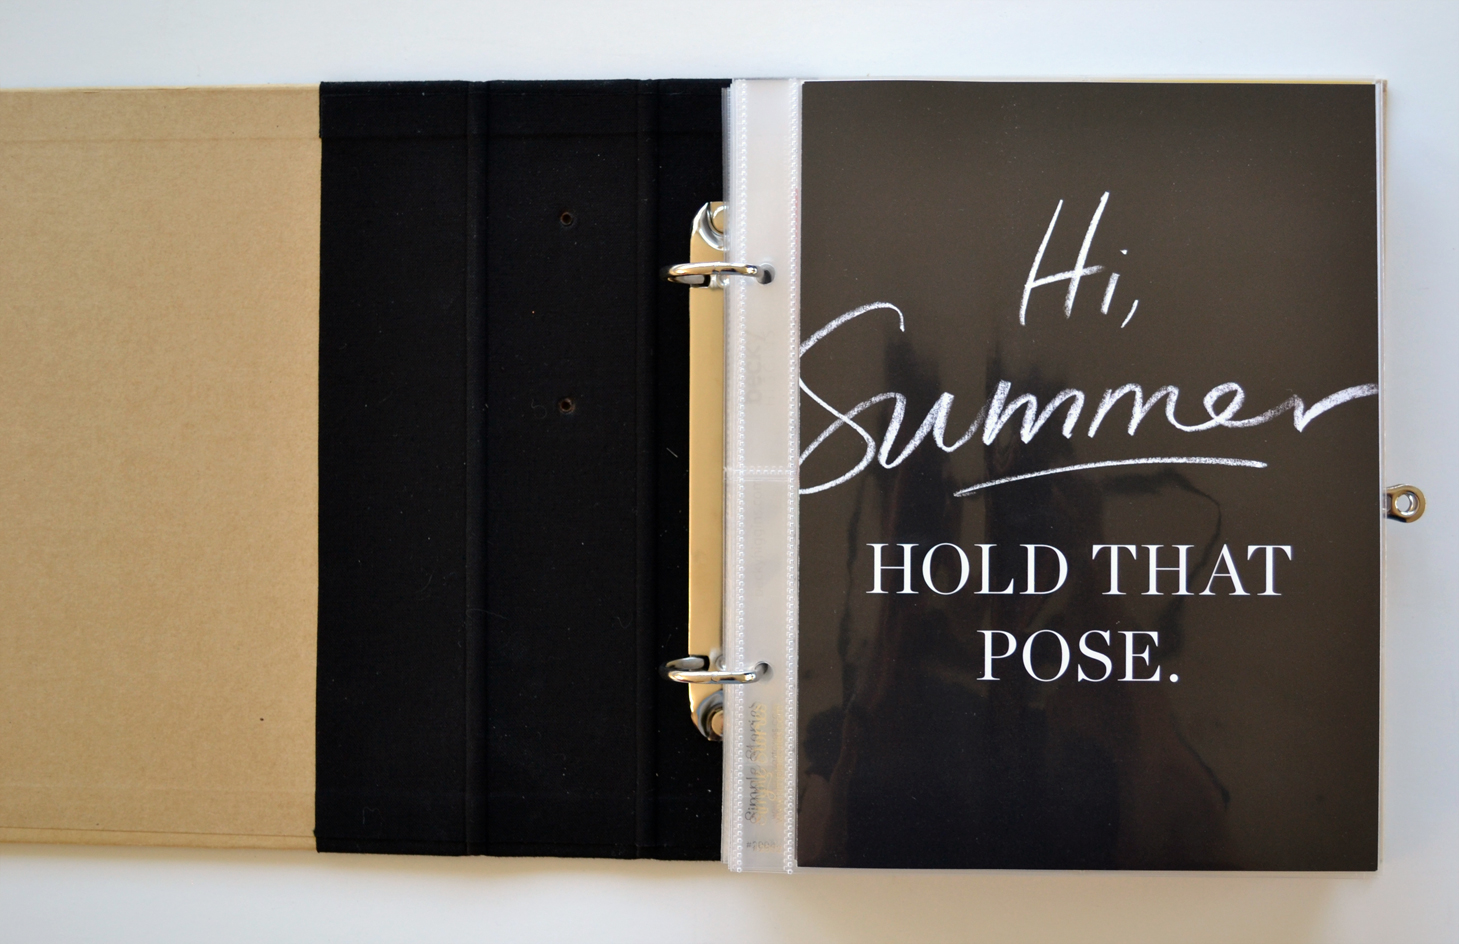 Hi,
Summer
HOLD THAT
POSE.
Simple Stories